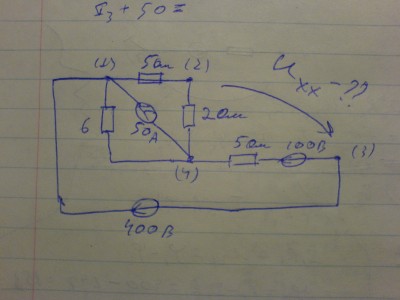 I₃ + 50 =
(1) 5ом (2)
Uxx - ??
6 50А 2ом
5ом 100В (3)
(4)
400В